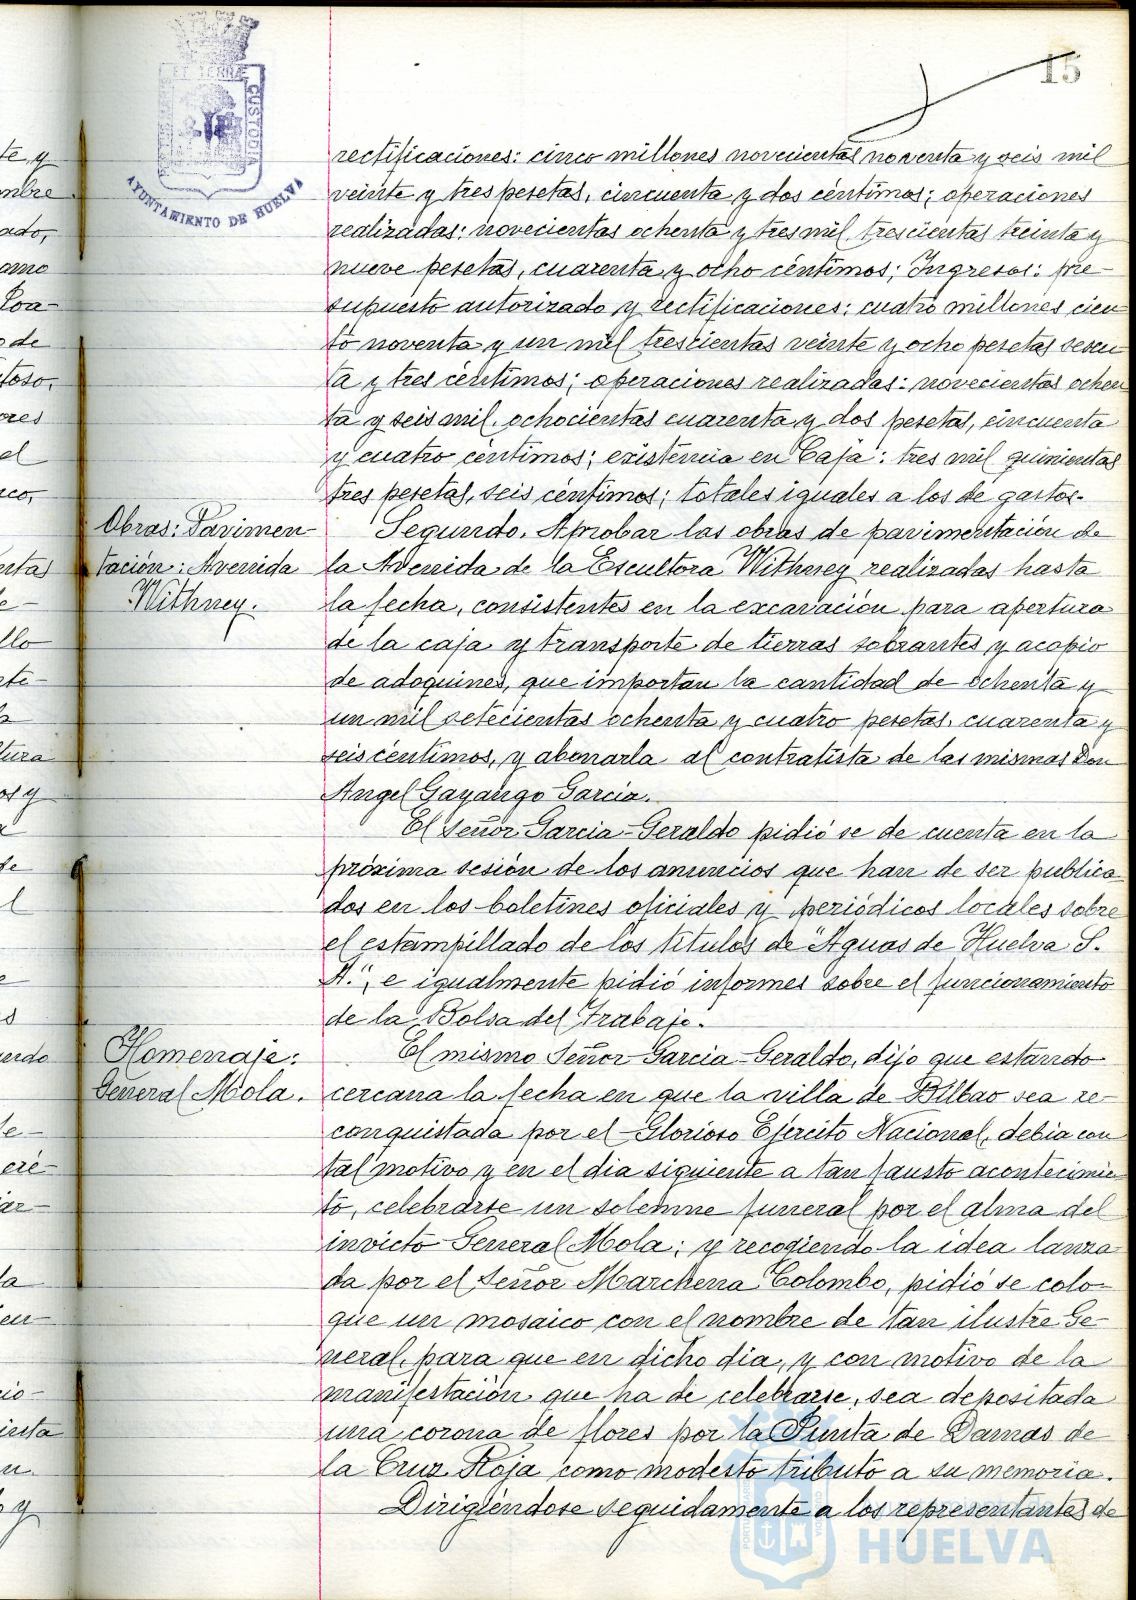 15
ET TERRÆ CUSTODIA
AYUNTAMIENTO DE HUELVA
rectificaciones: cinco millones novecientas noventa y seis mil
veinte y tres pesetas, cincuenta y dos céntimos; operaciones
realizadas: novecientas ochenta y tres mil, trescientas treinta y
nueve pesetas, cuarenta y ocho céntimos; Ingresos: pre-
supuesto autorizado y rectificaciones: cuatro millones cien
to noventa y un mil trescientas veinte y ocho pesetas sesen
ta y tres céntimos; operaciones realizadas: novecientas ochen
ta y seis mil, ochocientas cuarenta y dos pesetas, cincuenta
y cuatro céntimos; existencia en Caja: tres mil quinientas
tres pesetas, seis céntimos; totales iguales a los de gastos.
Obras: Pavimen-
tación: Avenida
Withney.
Segundo. Aprobar las obras de pavimentación de
la Avenida de la Escultora Withney realizadas hasta
la fecha, consistentes en la excavación para apertura
de la caja y transporte de tierras sobrantes y acopio
de adoquines, que importan la cantidad de ochenta y
un mil setecientas ochenta y cuatro pesetas, cuarenta y
seis céntimos, y abonarla al contratista de las mismas Don
Angel Gayango García.
El Señor García-Geraldo pidió se de cuenta en la
próxima sesión de los anuncios que han de ser publica
dos en los boletines oficiales y periódicos locales sobre
el estampillado de los títulos de "Aguas de Huelva S.
A.", e igualmente pidió informes sobre el funcionamiento
de la Bolsa del Trabajo.
Homenaje:
General Mola.
El mismo Señor García-Geraldo, dijo que estando
cercana la fecha en que la villa de Bilbao sea re-
conquistada por el Glorioso Ejército Nacional, debia con
tal motivo y en el dia siguiente a tan fausto acontecimien
to, celebrarse un solemne funeral por el alma del
invicto General Mola; y recogiendo la idea lanza-
da por el Señor Marchena Colombo, pidió se colo-
que un mosaico con el nombre de tan ilustre Ge-
neral, para que en dicho dia, y con motivo de la
manifestación que ha de celebrarse, sea depositada
una corona de flores por la Junta de Damas de
la Cruz Roja como modesto tributo a su memoria.
Dirigiéndose seguidamente a los representantes de
HUELVA